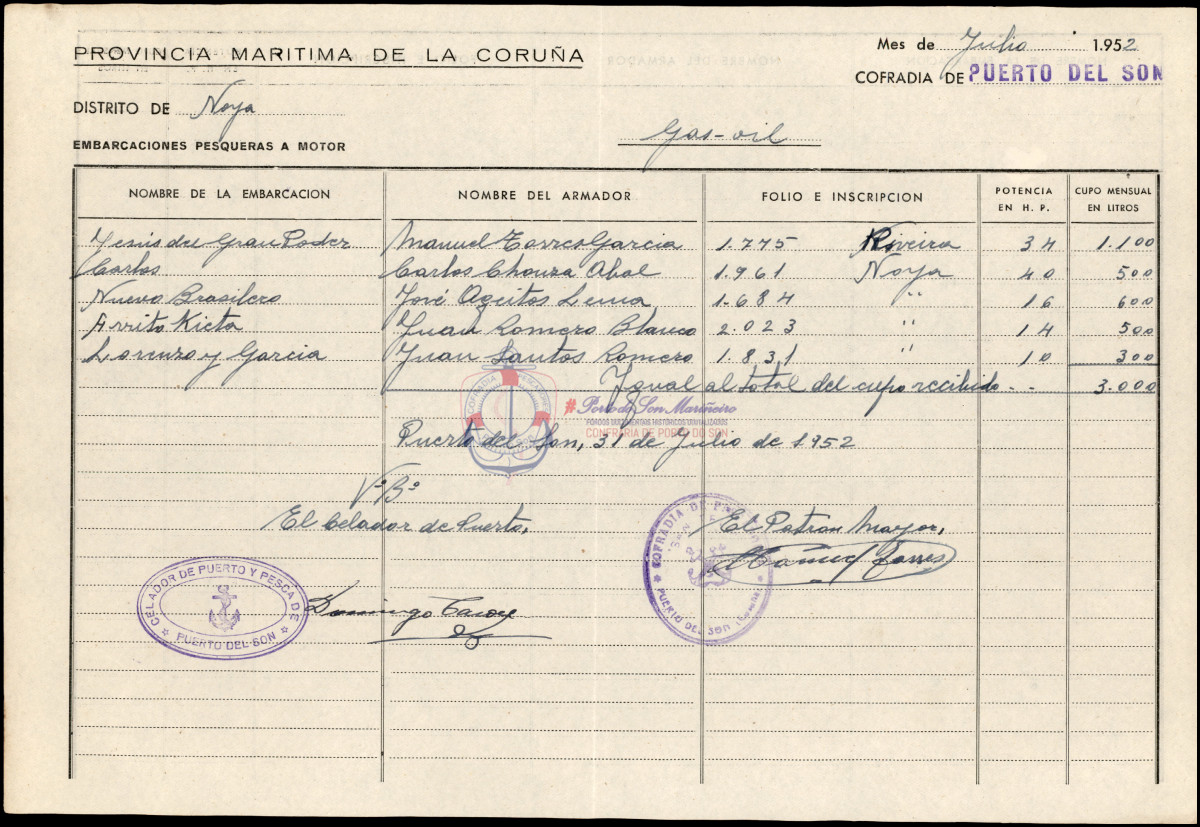 PROVINCIA MARITIMA DE LA CORUÑA
Mes de Julio 1.952
COFRADIA DE PUERTO DEL SON
DISTRITO DE Noya
Gas-oil
EMBARCACIONES PESQUERAS A MOTOR
NOMBRE DE LA EMBARCACION NOMBRE DEL ARMADOR FOLIO E INSCRIPCION POTENCIA EN H. P. CUPO MENSUAL EN LITROS
Jesus del Gran Poder Manuel Torres Garcia 1.775 Riveira 34 1.100
Carlos Carlos Chouza Abal 1.961 Noya 40 500
Nuevo Brasilero José Ageitos Lema 1.684 " 16 600
Juan Romero Blanco 2.023 " 14 500
Lorenzo y Garcia Juan Santos Romero 1.831 " 10 300
Igual al total del cupo recibido -- 3.000
#Porto do Son Mariñeiro
CONFRARIA DE PORTO DO SON
Puerto del Son, 31 de Julio de 1952
VºBº
El Celador de Puerto,
El Patron Mayor,
Manuel Torres
COFRADIA DE
PUERTO DEL SON
CELADOR DE PUERTO Y PESCA DE
PUERTO DEL SON
Domingo